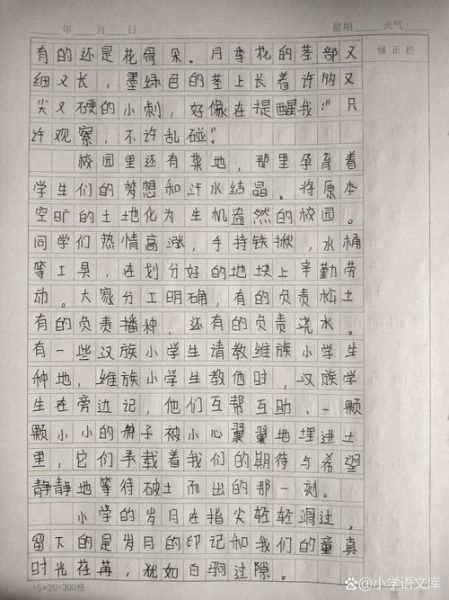 年 月 日 星期 天气
修正栏
有的还是花骨朵。月季花的茎部又
细又长，墨绿色的茎上长着许多又
尖又硬的小刺，好像在提醒我：“只
许观察，不许乱碰”
校园里还有菜地，那里孕育着
学生们的梦想和汗水结晶。将原本
空旷的土地化为生机盎然的校园。
同学们热情高涨，手持铁揪，水桶
等工具，在划分好的地块上辛勤劳
动。大家分工明确，有的负责松土
有的负责播种，还有的负责浇水。
有一些汉族小学生请教维族小学生
种地，维族小学生教他时，汉族学
生在旁边记，他们互帮互助、一颗
颗小小的种子被小心翼翼地埋进土
里，它们承载着我们的期待与希望
静静地等待破土而出的那一刻。
小学的岁月在指尖轻轻滑过，
留下的是岁月的印记和我们的童真
时光荏苒，犹如白驹过隙。
15×20=300格
@小学语文库